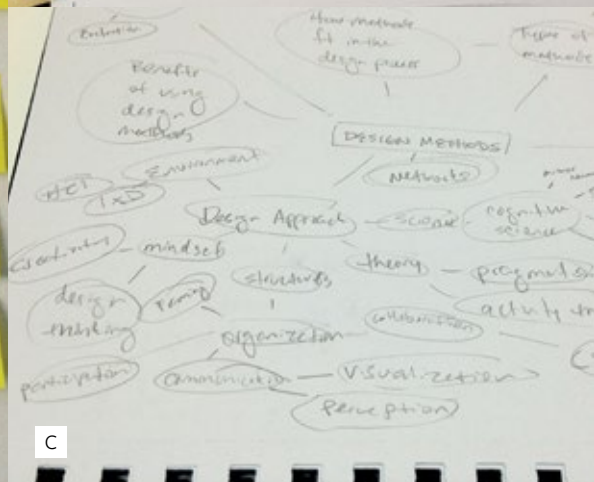 Evaluation
How methods
fit in the
design process
Types of
methods
Benefits
of using
design
methods
DESIGN METHODS
Networks
Environment
HCI
IxD
Design Approach
science
cognitive
science
Creativity
mindset
theory
pragmatis
structures
design
thinking
framing
activity th
collaboration
organization
participation
communication
visualization
perception
C